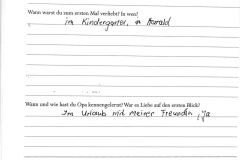 Wann warst du zum ersten Mal verliebt? In wen?
im Kindergarten, in Harald
Wann und wie hast du Opa kennengelernt? War es Liebe auf den ersten Blick?
Im Urlaub mit meiner Freundin, Ja